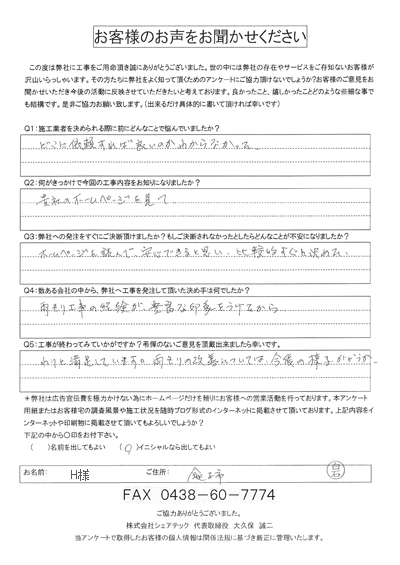 お客様のお声をお聞かせください
この度は弊社に工事をご用命頂き誠にありがとうございました。世の中には弊社の存在やサービスをご存知ないお客様が
沢山いらっしゃいます。その方たちに弊社をよく知って頂くためのアンケートにご協力頂けないでしょうか?お客様のご意見をお
聞かせいただき今後の活動に反映させていただきたいと考えております。良かったこと、嬉しかったことどのような些細な事で
も結構です。是非ご協力お願い致します。(出来るだけ具体的に書いて頂ければ幸いです)
Q1:施工業者を決められる際に前にどんなことで悩んでいましたか?
どこに依頼すれば良いのかわからなかった。
Q2:何がきっかけで今回の工事内容をお知りになりましたか?
貴社のホームページを見て
Q3:弊社への発注をすぐにご決断頂けましたか?もしご決断されなかったとしたらどんなことが不安になりましたか?
ホームページを読んで、安心できると思い、比較的すぐに決めた。
Q4:数ある会社の中から、弊社へ工事を発注して頂いた決め手は何でしたか?
雨もり工事の経験が、豊富な印象をうけたから
Q5:工事が終わってみていかがですか?忌憚のないご意見を頂戴出来ましたら幸いです。
わりと満足しています。雨もりの改善については、今後の様子がどうか。
*弊社は広告宣伝費を極力かけない為にホームページだけを頼りにお客様への営業活動を行っております。本アンケート
用紙またはお客様宅の調査風景や施工状況を随時ブログ形式のインターネットに掲載させて頂いております。上記内容をイ
ンターネットや印刷物に掲載させて頂いてもよろしいでしょうか?
下記の中から〇印をお付下さい。
( )名前を出してもよい (〇)イニシャルなら出してもよい
お名前: H様 ご住所:
FAX 0438-60-7774
ご協力ありがとうございました。
株式会社シェアテック 代表取締役 大久保 誠二
当アンケートで取得したお客様の個人情報は関係法規に基づき厳正に管理いたします。